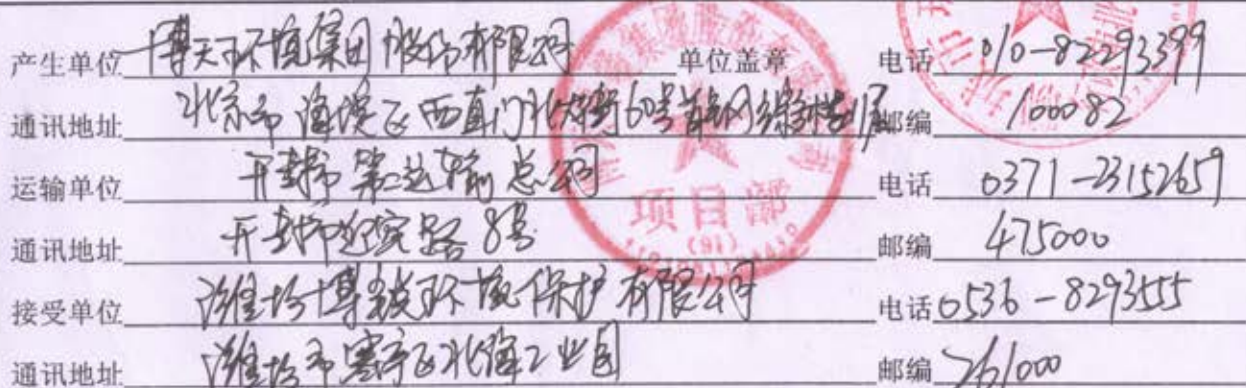 产生单位 博天环境集团股份有限公司 单位盖章 电话 010-82293399
通讯地址 北京市海淀区西直门北大街60号首钢综合楼 层 邮编 100082
运输单位 开封市第二运输总公司 电话 0371-23152659
通讯地址 开封市迎宾路8号 邮编 475000
接受单位 潍坊博锐环境保护有限公司 电话 0536-8293555
通讯地址 潍坊市寒亭区北海工业园 邮编 261000
项目部
(91)